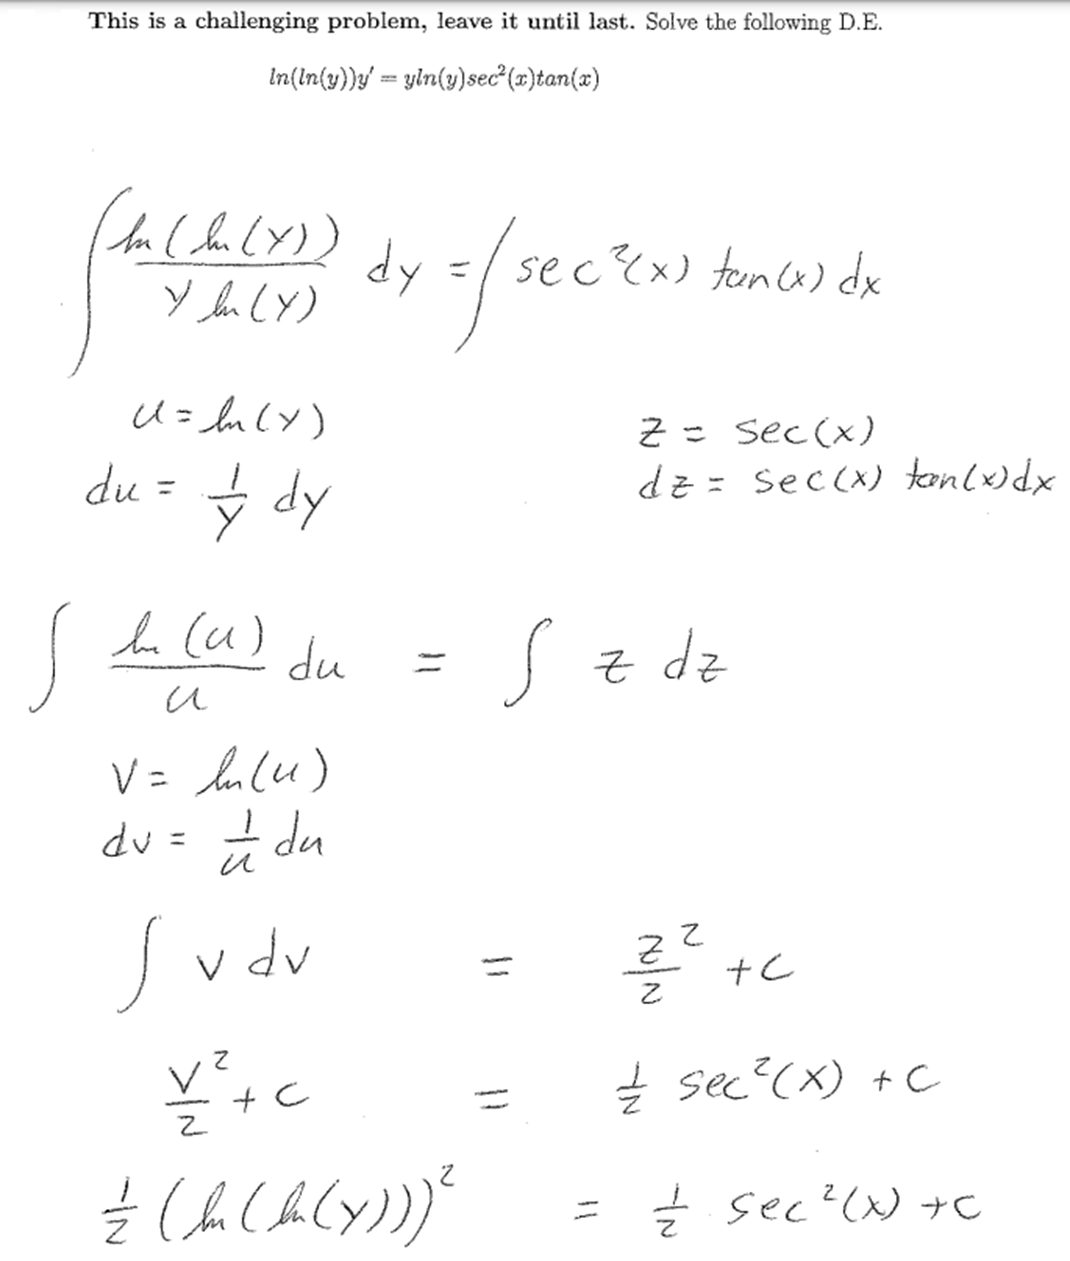 This is a challenging problem, leave it until last. Solve the following D.E.
ln(ln(y))y' = yln(y)sec²(x)tan(x)
∫ ln(ln(y)) / y ln(y) dy = ∫ sec²(x) tan(x) dx
u = ln(y)
z = sec(x)
du = 1/y dy
dz = sec(x) tan(x) dx
∫ ln(u)/u du = ∫ z dz
v = ln(u)
dv = 1/u du
∫ v dv = z²/2 + c
v²/2 + c = 1/2 sec²(x) + c
1/2 (ln(ln(y)))² = 1/2 sec²(x) + c